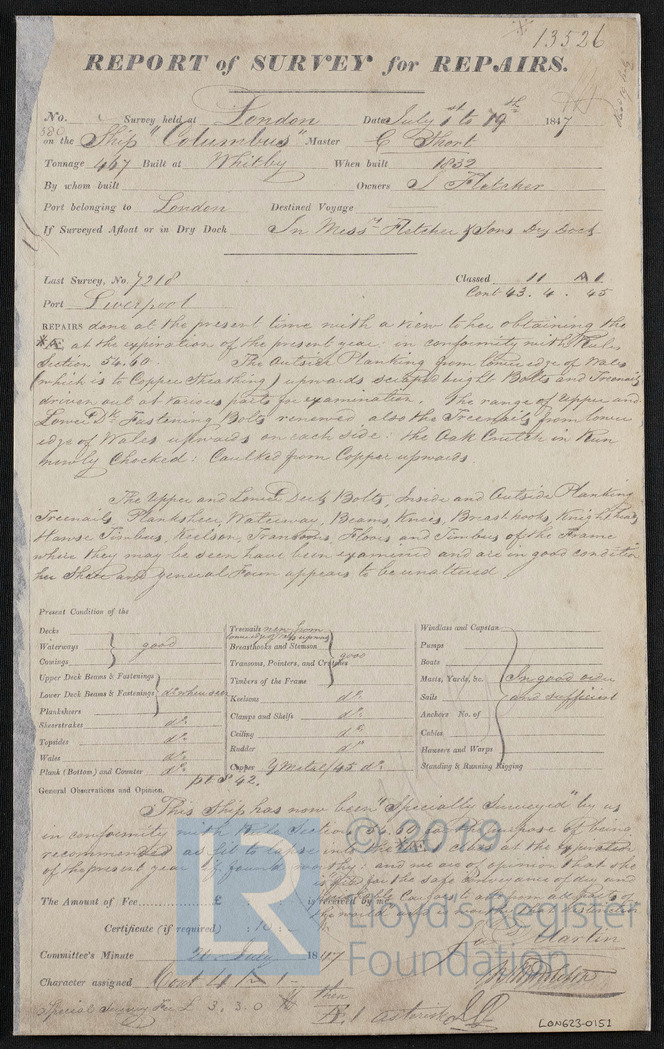 13526
REPORT of SURVEY for REPAIRS.
No. Survey held at London Date July 1st to 19th 1847
on the Ship "Columbus" Master C Short
Tonnage 467 Built at Whitby When built 1832
By whom built Owners J Fletcher
Port belonging to London Destined Voyage
If Surveyed Afloat or in Dry Dock In Messrs Fletcher & Sons Dry Dock
Last Survey, No. 7218 Classed 11 A 1
Port Liverpool Cont 43. 4. 45
REPAIRS done at the present time with a view to her obtaining the
*Æ at the expiration of the present year: in conformity with Rules
Section 56.60 The Outside Planking from lower edge of Wales
(which is to Copper Sheathing) upwards scraped bright Bolts and Treenails
driven out at various parts for examination. The range of upper and
Lower Dk Fastening Bolts renewed also the Treenails from lower
edge of Wales upwards on each side: the Oak Crutch in Run
newly Chocked: Caulked from Copper upwards.
The Upper and Lower Deck Bolts, Inside and Outside Planking
Treenails, Plankshear, Waterway, Beams, Knees, Breasthooks, Knightheads
Hawse Timbers, Keelson, Transoms, Floors and Timbers of the Frame
where they may be seen have been examined and are in good condition
her Sheer and general Form appears to be unaltered.
Present Condition of the
Decks
Waterways good
Comings
Upper Deck Beams & Fastenings
Lower Deck Beams & Fastenings do where seen
Plansheers
Sheerstrakes do
Topsides do
Wales do
Plank (Bottom) and Counter do
Treenails new from
lower edge of Wales upwards
Breasthooks and Stemson
Transoms, Pointers, and Crutches good
Timbers of the Frame
Keelsons do
Clamps and Shelfs do
Ceiling do
Rudder do
Copper Y Metal/45 do
pt S 42.
Windlass and Capstan
Pumps
Boats
Masts, Yards, &c. In good order
Sails and sufficient
Anchors No. of
Cables
Hawsers and Warps
Standing & Running Rigging
General Observations and Opinion,
This Ship has now been "Specially Surveyed" by us
in conformity with Rules Section 56.60 for the purpose of being
recommended as fit to lapse into the *Æ class at the expiration
of the present year if found worthy: and we are of opinion that she
is fit for the safe conveyance of dry and
perishable Cargoes to and from all parts of
the world
The Amount of Fee £ : : is received by me,
Certificate (if required) : 10 : -
Committee's Minute 20 July 1847
Character assigned Cont 11 A 1 -
then
Special Survey Fee £ 3. 3. 0 Æ. 1 asterisk
Jas Martin
© 2019
LR
Lloyd's Register
Foundation
LON623-0151